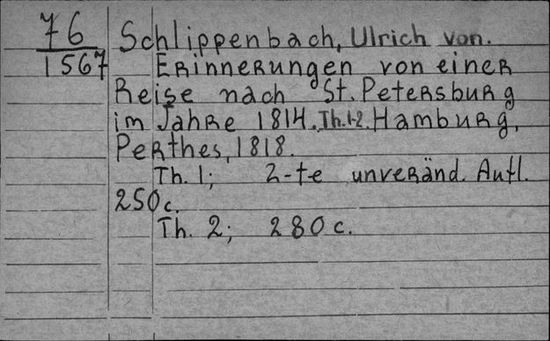 76
1567
Schlippenbach, Ulrich von.
Erinnerungen von einer
Reise nach St. Petersburg
im Jahre 1814. Th. 1-2. Hamburg,
Perthes, 1818.
Th. 1; 2-te unveränd. Aufl.
250 c.
Th. 2; 280 c.